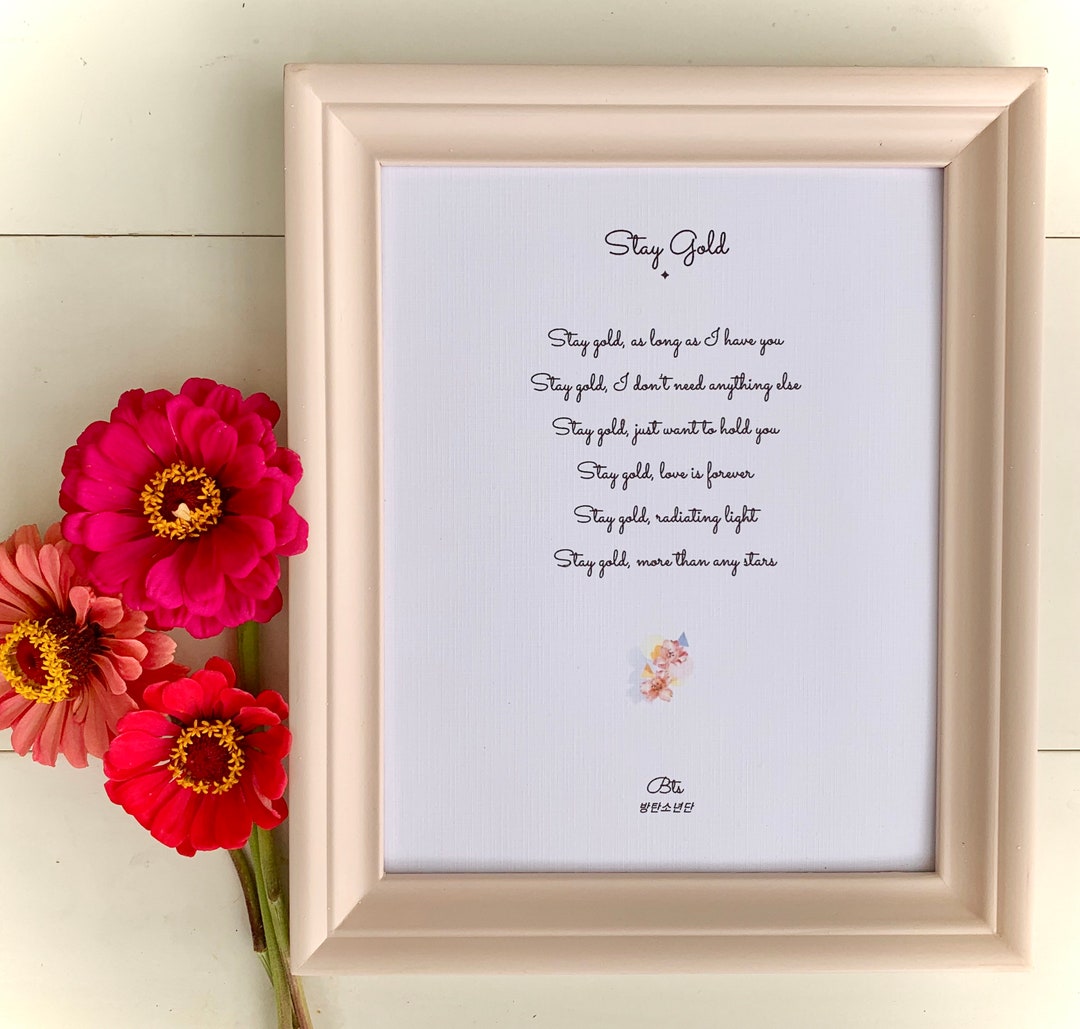 Stay Gold
Stay gold, as long as I have you
Stay gold, I don't need anything else
Stay gold, just want to hold you
Stay gold, love is forever
Stay gold, radiating light
Stay gold, more than any stars
Bts
방탄소년단